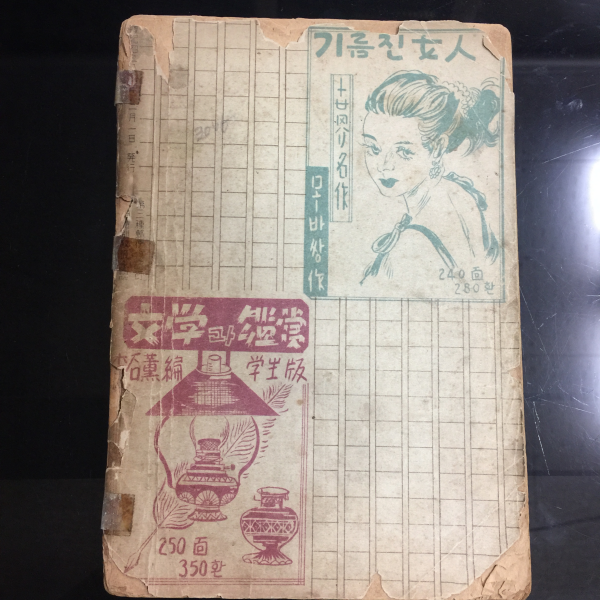 기름진 女人
世界名作
모바쌍作
240面
280환
文学과鑑賞
石薰編
学生版
250面
350환
月一日